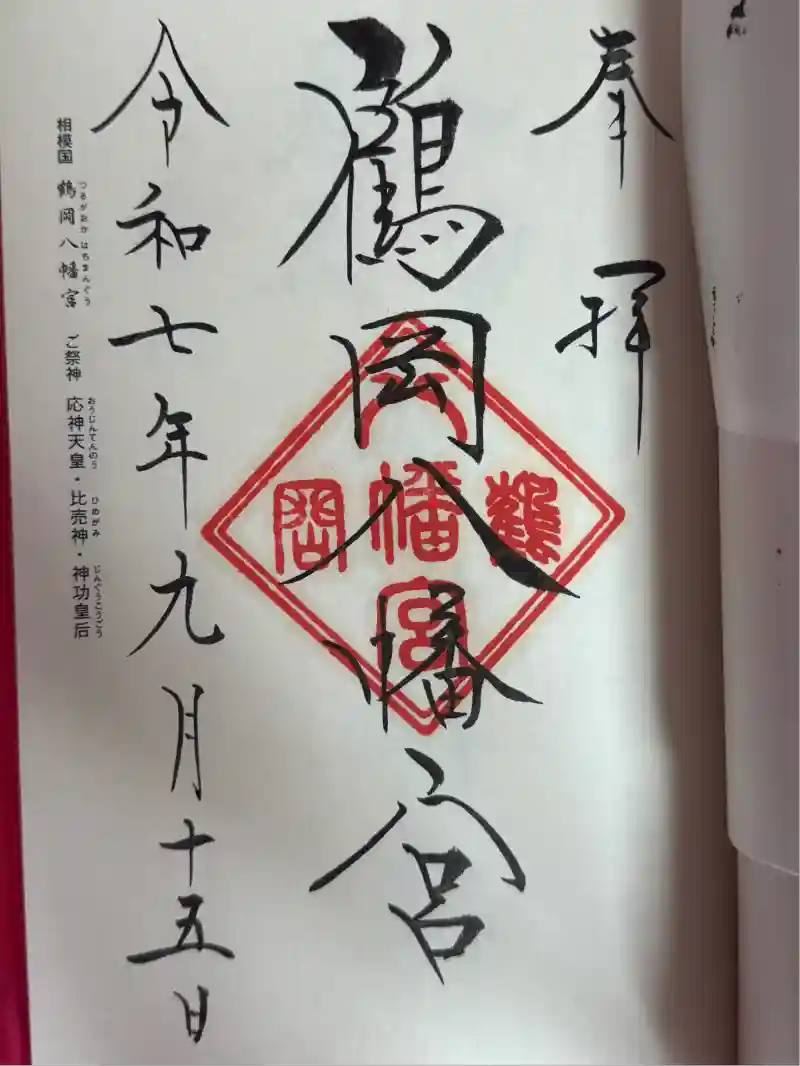 奉拝
鶴岡八幡宮
鶴岡八幡宮
令和七年九月十五日
相模国 鶴岡八幡宮 ご祭神 応神天皇・比売神・神功皇后
つるがおか はちまんぐう おうじんてんのう ひめがみ じんぐうこうごう